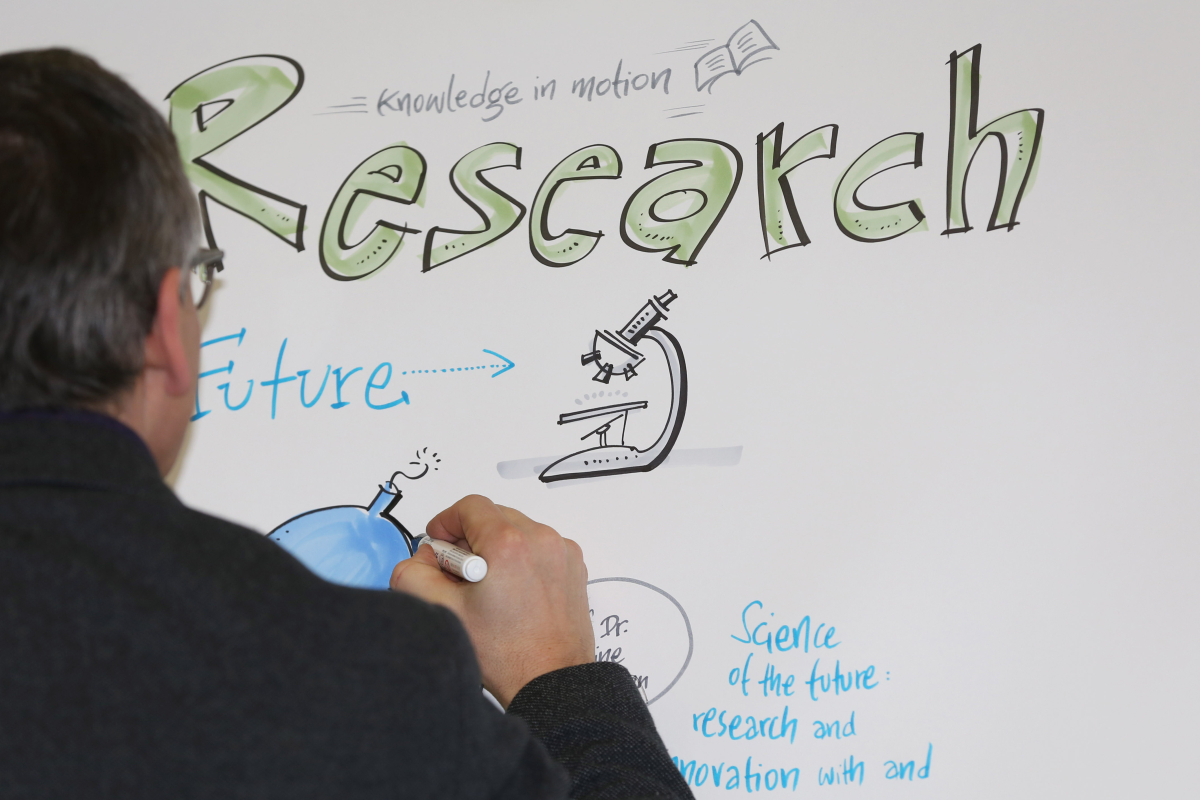 Knowledge in motion
Research
Future
Dr.
Science
of the future:
research and
with and